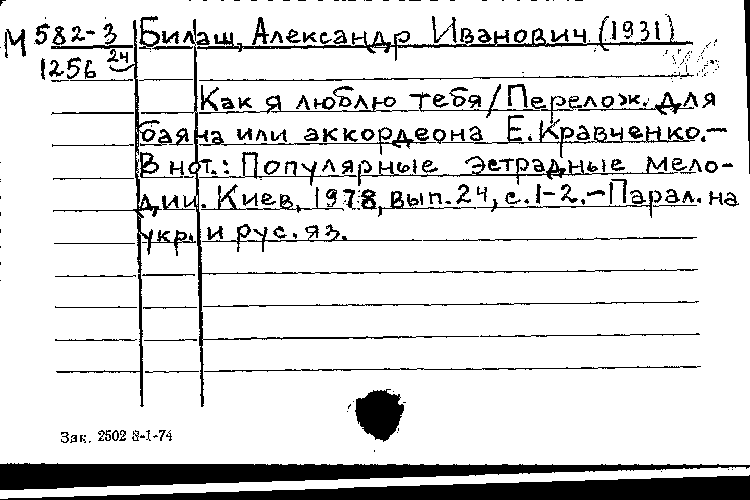 М 582-3 Билаш, Александр Иванович (1931)
1256 24
Как я люблю тебя / Перелож. для
баяна или аккордеона Е. Кравченко.—
В нот.: Популярные эстрадные мело-
дии. Киев, 1978, вып. 24, с. 1-2.—Парал. на
укр. и рус. яз.
Зак. 2502 8-1-74